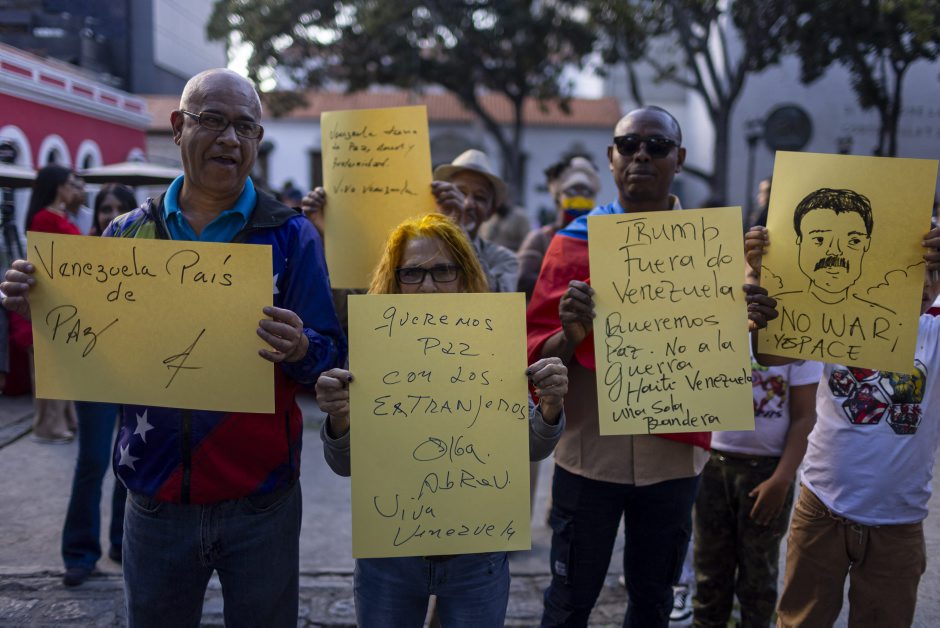 Venezuela País
de
Paz
Venezuela tierra
de Paz, Amor y
fraternidad.
Viva Venezuela
Queremos
Paz.
con Los.
Extranjeros
Olga.
Abreu
Viva
Venezuela
Trump
Fuera de
Venezuela
Queremos
Paz. No a la
guerra
Haiti Venezuela
una Sola
Bandera
NO WAR;
YESPACE